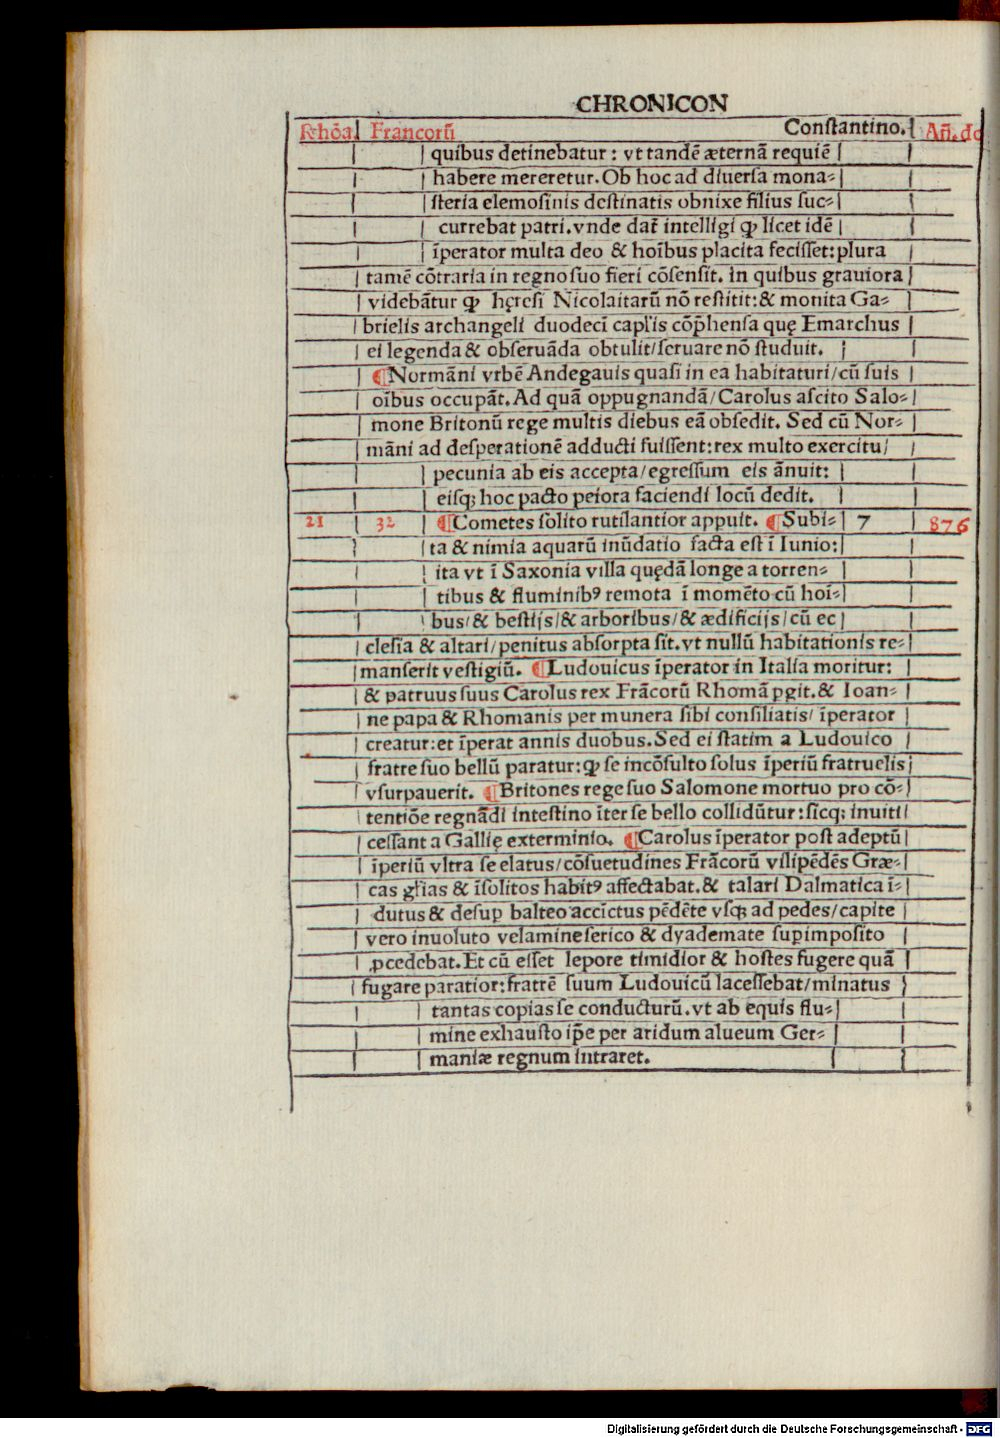 CHRONICON
Rhōa. Francorū Constantino. Añ. do
quibus detinebatur : vt tandē æternā requiē
habere mereretur. Ob hoc ad diuersa mona⸗
steria elemosinis destinatis obnixe filius suc⸗
currebat patri. vnde dat̄ intelligi ꝙ licet idē
īperator multa deo & hoībus placita fecisset: plura
tamē cōtraria in regno suo fieri cōsensit. in quibus grauiora
videbātur ꝙ hęresi Nicolaitarū nō restitit: & monita Ga⸗
brielis archangeli duodecī capl'is cōp̄hensa quę Emarchus
ei legenda & obseruāda obtulit/ seruare nō studuit.
¶Normāni vrbē Andegauis quasi in ea habitaturi/ cū suis
oībus occupāt. Ad quā oppugnandā/ Carolus ascito Salo⸗
mone Britonū rege multis diebus eā obsedit. Sed cū Nor⸗
māni ad desperationē adducti fuissent: rex multo exercitu/
pecunia ab eis accepta/ egressum eis ānuit:
eisq; hoc pacto peiora faciendi locū dedit.
21 32 ¶Cometes solito rutilantior appuit. ¶Subi⸗ 7 876
ta & nimia aquarū inūdatio facta est ī Iunio:
ita vt ī Saxonia villa quędā longe a torren⸗
tibus & fluminibꝰ remota ī momēto cū hoī⸗
bus/ & bestijs/ & arboribus/ & ædificijs/ cū ec
clesia & altari/ penitus absorpta sit. vt nullū habitationis re⸗
manserit vestigiū. ¶Ludouicus īperator in Italia moritur:
& patruus suus Carolus rex Frācorū Rhomā ꝑgit. & Ioan⸗
ne papa & Rhomanis per munera sibi consiliatis/ īperator
creatur: et īperat annis duobus. Sed ei statim a Ludouico
fratre suo bellū paratur: ꝙ se incōsulto solus īperiū fratruelis
vsurpauerit. ¶Britones rege suo Salomone mortuo pro cō⸗
tentiōe regnādi intestino īter se bello collidūtur: sicq; inuiti
cessant a Gallię exterminio. ¶Carolus īperator post adeptū
īperiū vltra se elatus/ cōsuetudines Frācorū vilipēdēs Græ⸗
cas gl'ias & īsolitos habitꝰ affectabat. & talari Dalmatica ī⸗
dutus & desuꝑ balteo accīctus pēdēte vsqȝ ad pedes/ capite
vero inuoluto velamine serico & dyademate suꝑimposito
ꝓcedebat. Et cū esset lepore timidior & hostes fugere quā
fugare paratior: fratrē suum Ludouicū lacessebat/ minatus
tantas copias se conducturū. vt ab equis flu⸗
mine exhausto ip̄e per aridum alueum Ger⸗
maniæ regnum intraret.
Digitalisierung gefördert durch die Deutsche Forschungsgemeinschaft - DFG